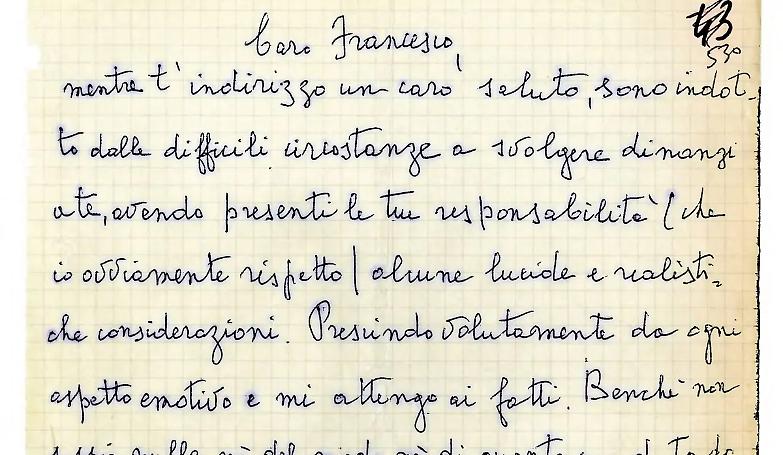 530
Caro Francesco,
mentre t'indirizzo un caro saluto, sono indot-
to dalle difficili circostanze a svolgere dinanzi
a te, avendo presenti le tue responsabilità (che
io ovviamente rispetto) alcune lucide e realisti-
che considerazioni. Prescindo volutamente da ogni
aspetto emotivo e mi attengo ai fatti. Benchè non